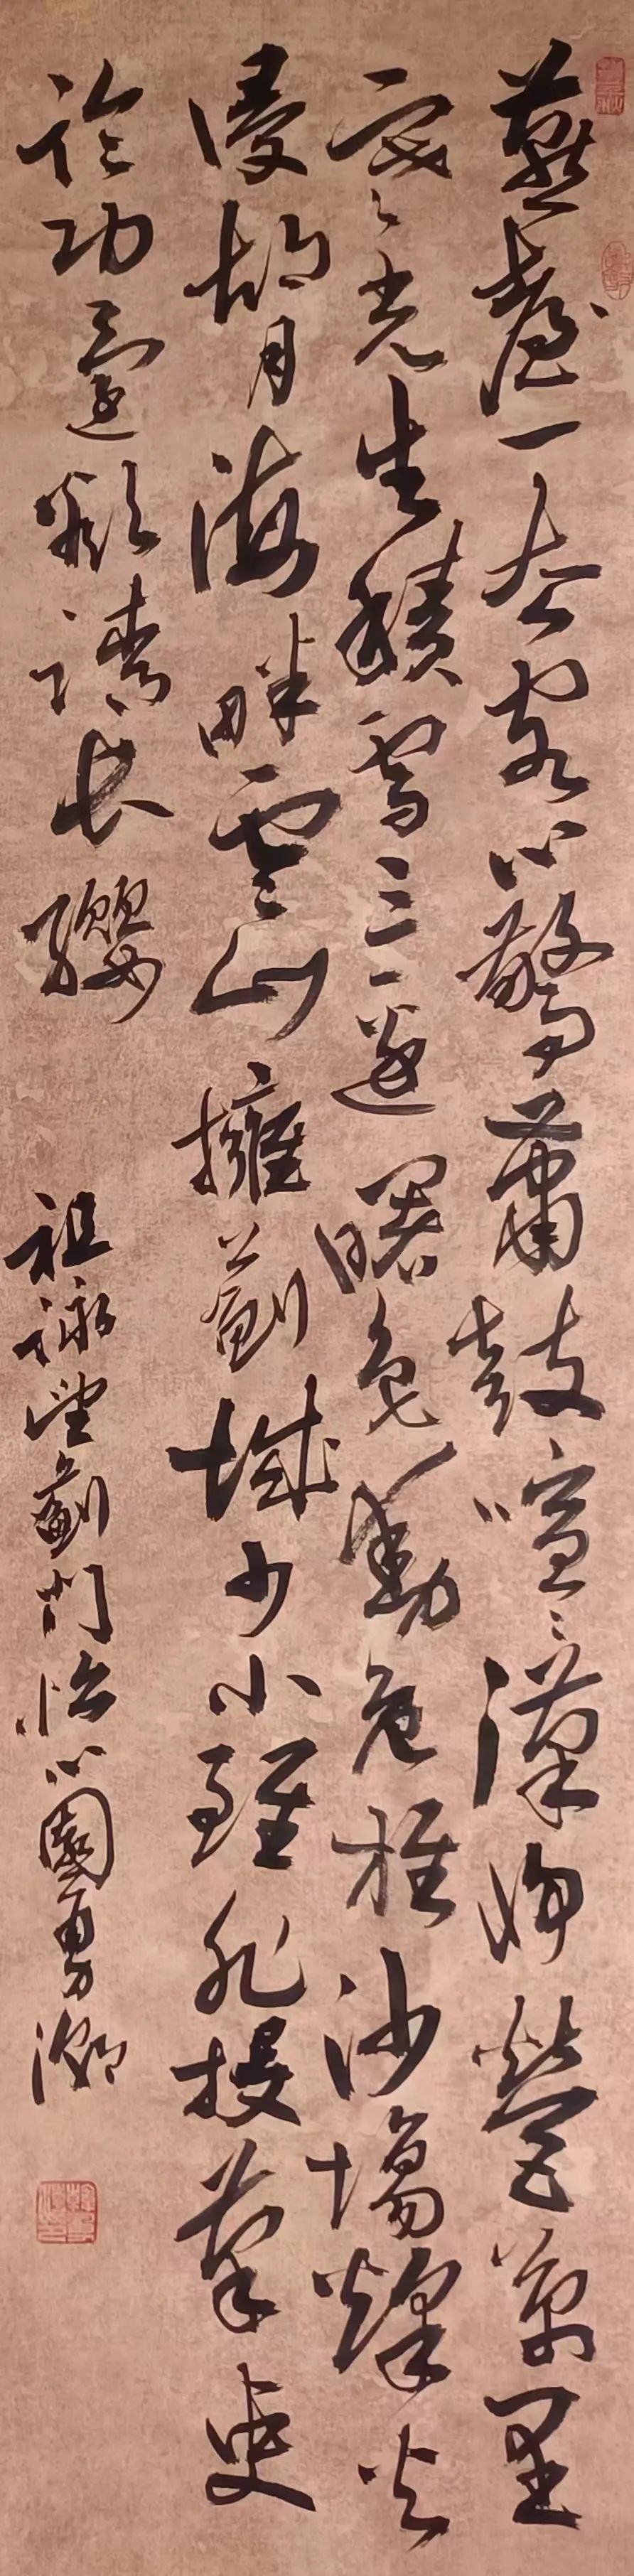 燕臺一去客心驚蕭鼓喧〻漢將營萬里
寒光生積雪三邊曙色動危旌沙場烽火
侵胡月海畔雲山擁薊城少小雖非投筆吏
論功還欲請長纓
祖詠望薊門怡心園勇